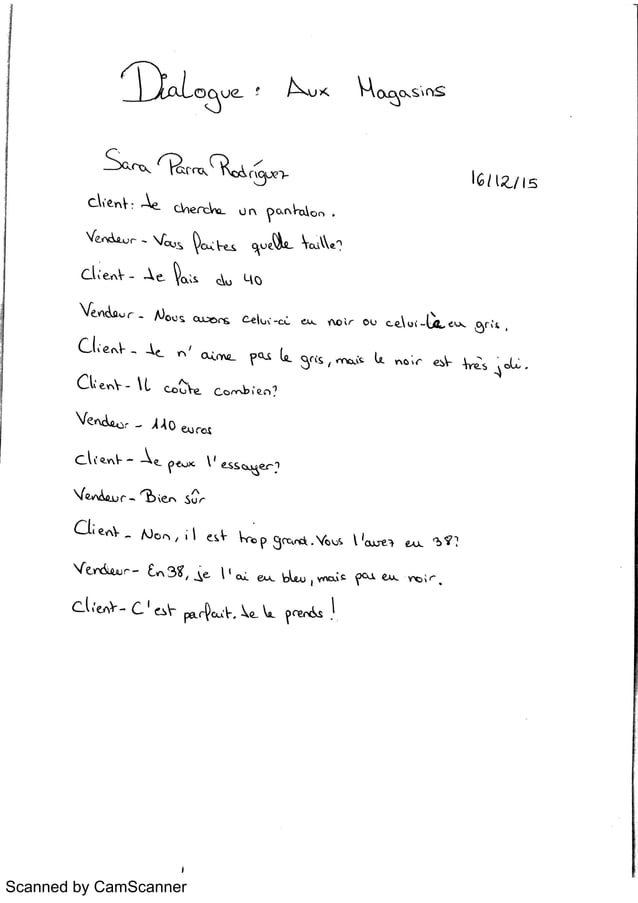 Dialogue : Aux Magasins
Sara Parra Rodríguez
16/12/15
Client: Je cherche un pantalon.
Vendeur - Vous faites quelle taille?
Client - Je fais du 40
Vendeur - Nous avons celui-ci en noir ou celui-là en gris.
Client - Je n'aime pas le gris, mais le noir est très joli.
Client - Il coûte combien?
Vendeur - 110 euros
Client - Je peux l'essayer?
Vendeur - Bien sûr
Client - Non, il est trop grand. Vous l'avez en 38?
Vendeur - En 38, je l'ai en bleu, mais pas en noir.
Client - C'est parfait. Je le prends!
Scanned by CamScanner